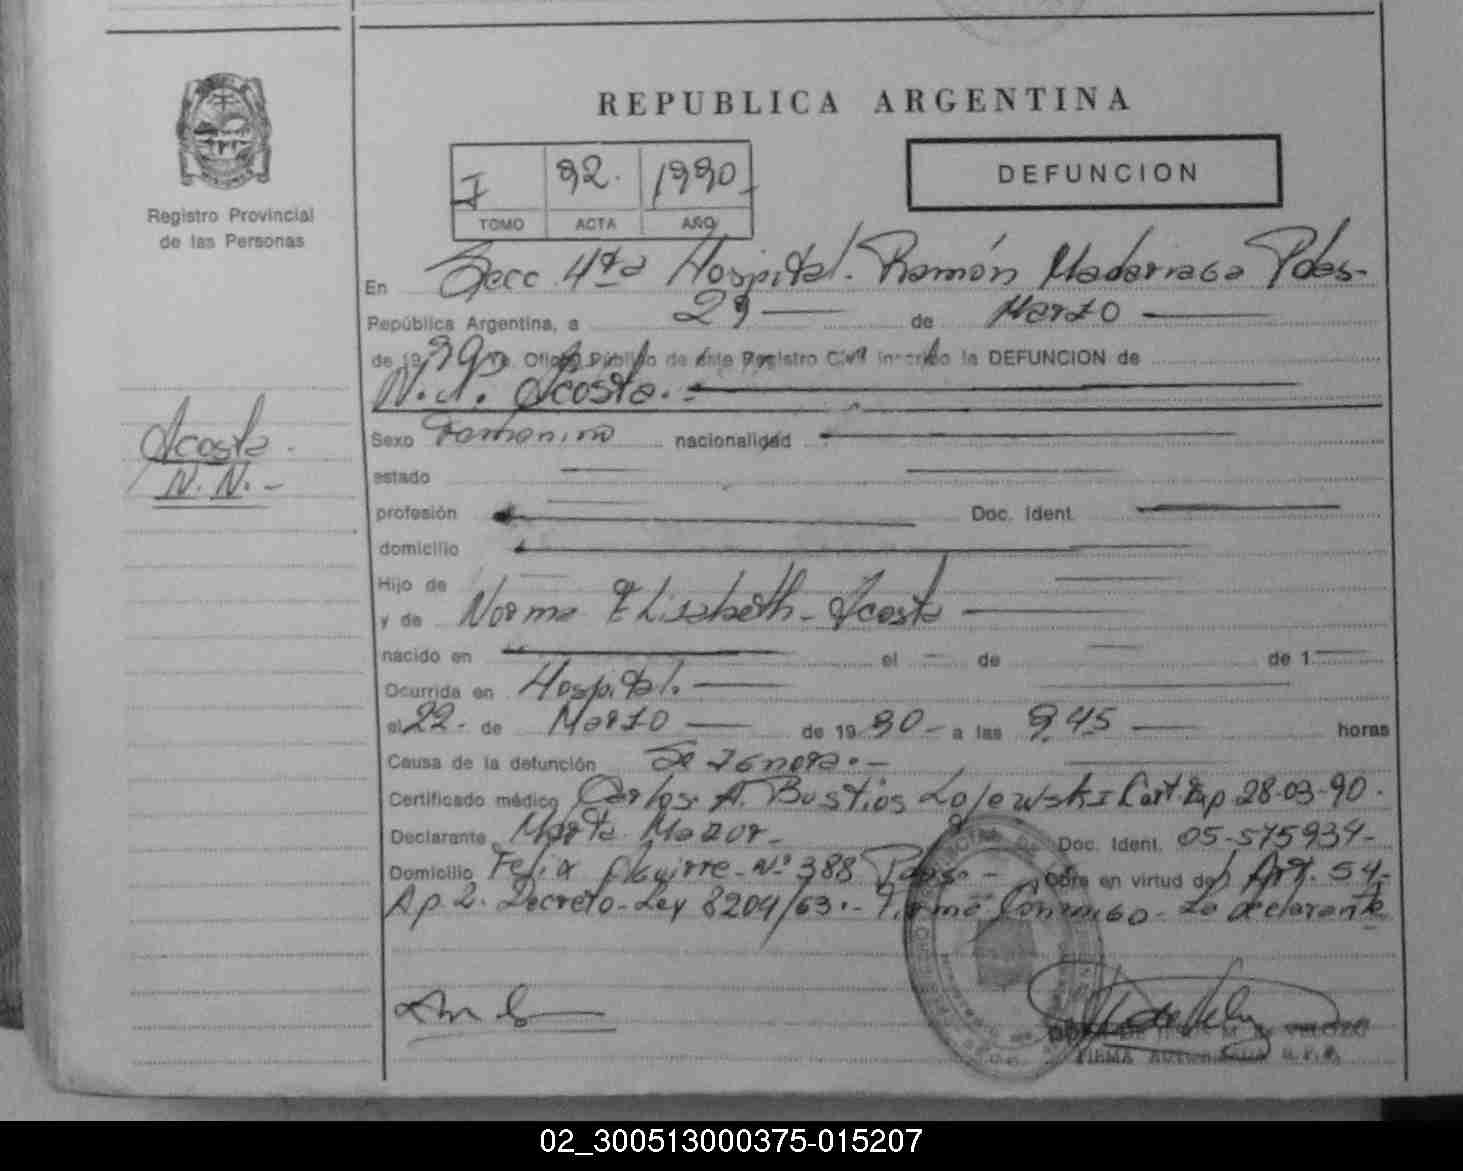 REPUBLICA ARGENTINA
Registro Provincial
de las Personas
I 92. 1990
TOMO ACTA AÑO
DEFUNCION
En Secc 4ta Hospital. Ramón Madariaga Pdas-
República Argentina, a 29 de Marzo
de 19 90 Oficial Público de este Registro Civil inscribo la DEFUNCION de
N.N. Acosta.
Acosta.
N. N. -
Sexo Femenino nacionalidad
estado
profesión Doc. Ident.
domicilio
Hijo de
y de Norma Elisabeth Acosta
nacido en el de de 1
Ocurrida en Hospital.
el 22. de Marzo de 19 90 - a las 9,45 horas
Causa de la defunción
Certificado médico Carlos A. Bustios Lojewski Cart Exp 28-03-90.
Declarante Marta Mazur - Doc. Ident. 05-575934-
Domicilio Felix Aguirre - Nº 388 Pdas. - Obra en virtud de Art. 54-
Ap 2. Decreto-Ley 8204/63.- Firma Conmigo - La declarante
02_300513000375-015207